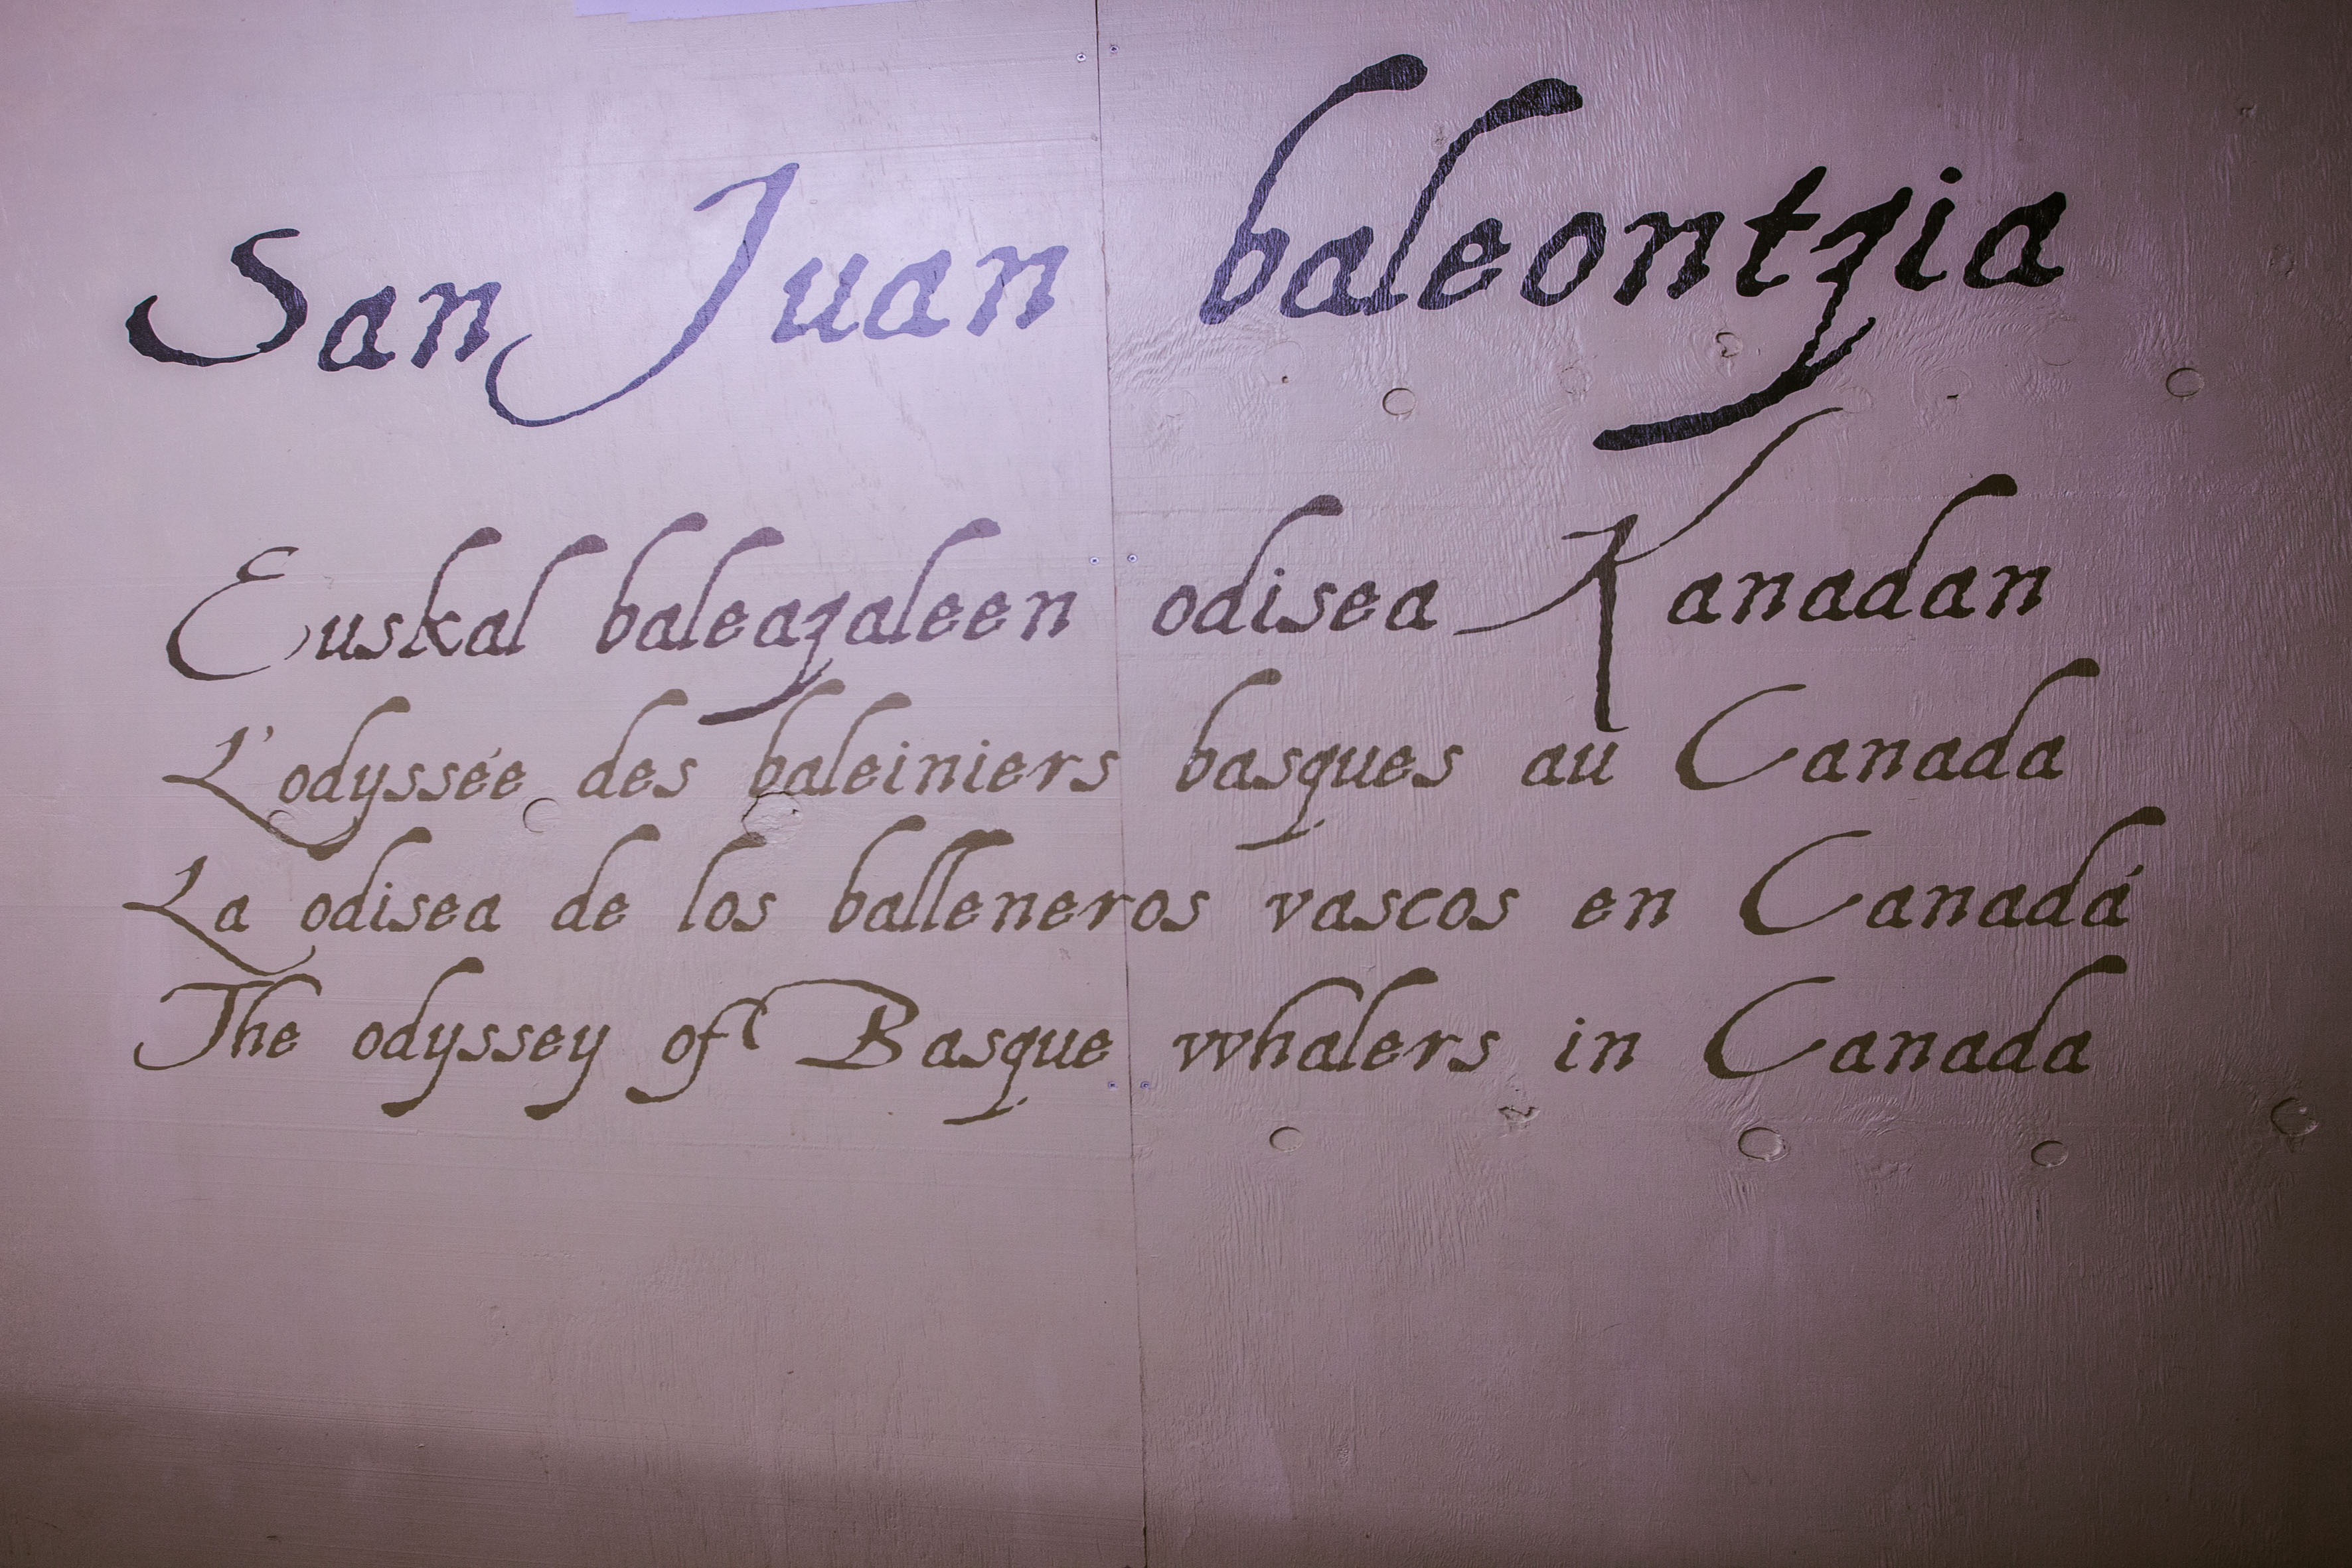 San Juan baleontzia
Euskal baleazaleen odisea Kanadan
L'odyssée des baleiniers basques au Canada
La odisea de los balleneros vascos en Canadá
The odyssey of Basque whalers in Canada